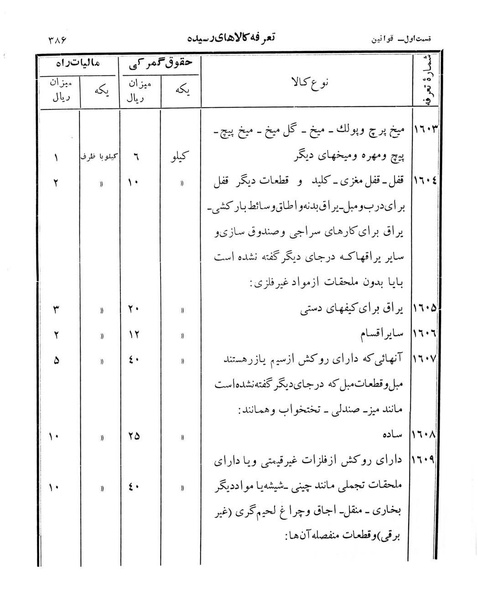 قسمت اول ـ قوانین
تعرفه کالاهای رسیده
۳۸۶
شمارهٔ تعرفه
نوع کالا
حقوق گمرکی
مالیات راه
یکه
میزان ریال
یکه
میزان ریال
۱۶۰۳ میخ پرچ و پولك ـ میخ ـ گل میخ ـ میخ پیچ ـ
پیچ ومهره ومیخهای دیگر کیلو ۶ کیلو با ظرف ۱
۱۶۰٤ قفل ـ قفل مغزی ـ کلید و قطعات دیگر قفل » ۱۰ » ۲
برای درب و مبل ـ یراق بدنه و اطاق و سائط بارکشی ـ
یراق برای کارهای سراجی وصندوق سازی و
سایر یراقها که درجای دیگر گفته نشده است
با یا بدون ملحقات ازمواد غیرفلزی:
۱۶۰۵ یراق برای کیفهای دستی » ۲۰ » ۳
۱۶۰۶ سایراقسام » ۱۲ » ۲
۱۶۰۷ آنهائی که دارای روکش ازسیم یازرهستند » ٤۰ » ۵
مبل وقطعات مبل که درجای دیگر گفته نشده است
مانند میز ـ صندلی ـ تختخواب وهمانند:
۱۶۰۸ ساده » ۲۵ » ۱۰
۱۶۰۹ دارای روکش ازفلزات غیرقیمتی ویا دارای
ملحقات تجملی مانند چینی ـ شیشه یا مواد دیگر » ٤۰ » ۱۰
بخاری ـ منقل ـ اجاق وچراغ لحیم گری (غیر
برقی) وقطعات منفصله آن‌ها: